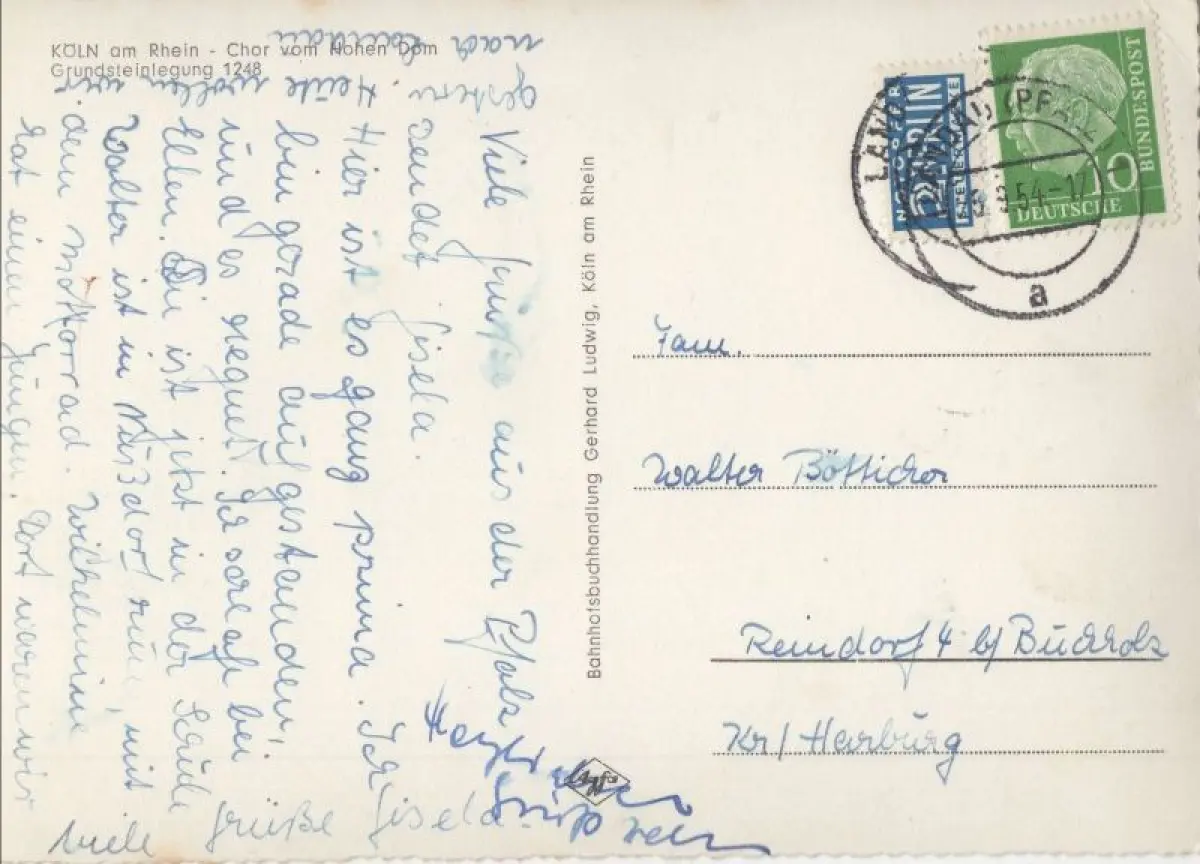 KÖLN am Rhein - Chor vom Hohen Dom
Grundsteinlegung 1248
Viele Grüße aus der Pfalz
sendet Gisela.
Hier ist es ganz prima. Ich
bin gerade aufgestanden,
und es regnet. Ich schlafe bei
Ellen. Die ist jetzt in der Schule
Walter ist in Nußdorf mit
dem Mottorrad. Wilhelmine
hat einen Jungen. Dort waren wir
gestern. Heute wollen wir
nach Landau
viele Grüße Gisela.
Herzl.
Bahnhofsbuchhandlung Gerhard Ludwig, Köln am Rhein
Agfa
NOTOPFER
2 BERLIN
STEUERMARKE
DEUTSCHE
BUNDESPOST
10
LANDAU (PFALZ)
9.54-17
a
Fam.
Walter Bötticher
Reindorf 4 b/ Buchholz
Kr/ Harburg